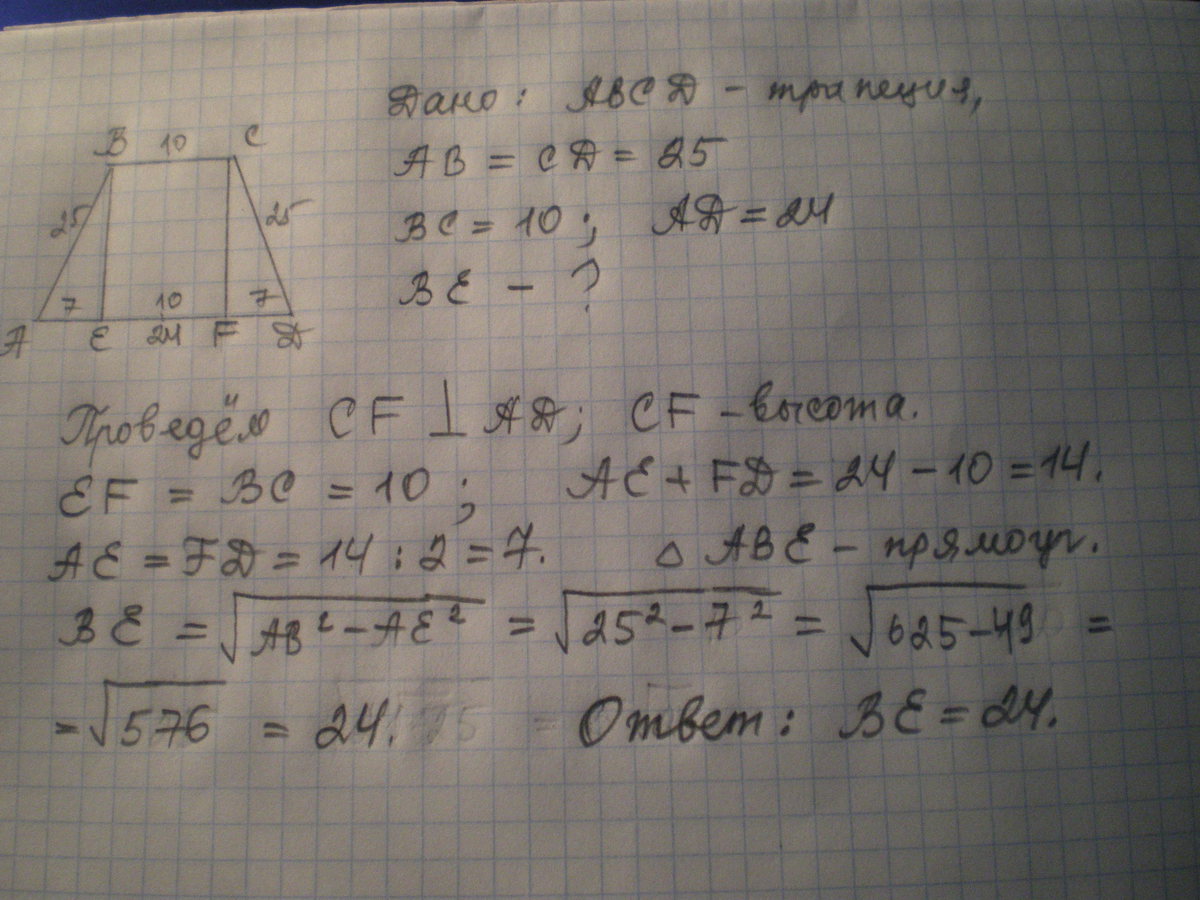 B 10 C
25 25
7 10 7
A E 24 F D
Дано: ABCD - трапеция,
AB = CD = 25
BC = 10; AD = 24
BE - ?
Проведём CF ⊥ AD; CF - высота.
EF = BC = 10; AE + FD = 24 - 10 = 14.
AE = FD = 14 : 2 = 7. △ ABE - прямоуг.
BE = √AB² - AE² = √25² - 7² = √625 - 49 =
= √576 = 24. Ответ: BE = 24.